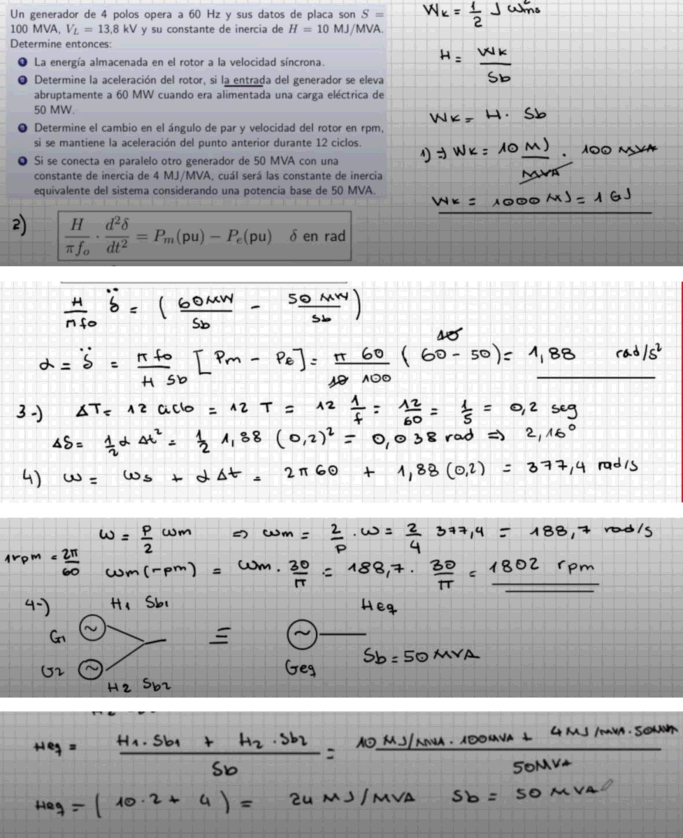 Un generador de 4 polos opera a 60 Hz y sus datos de placa son S =
100 MVA, V_L = 13,8 kV y su constante de inercia de H = 10 MJ/MVA.
Determine entonces:
1 La energía almacenada en el rotor a la velocidad síncrona.
2 Determine la aceleración del rotor, si la entrada del generador se eleva
abruptamente a 60 MW cuando era alimentada una carga eléctrica de
50 MW.
3 Determine el cambio en el ángulo de par y velocidad del rotor en rpm,
si se mantiene la aceleración del punto anterior durante 12 ciclos.
4 Si se conecta en paralelo otro generador de 50 MVA con una
constante de inercia de 4 MJ/MVA, cuál será las constante de inercia
equivalente del sistema considerando una potencia base de 50 MVA.
Wk = 1/2 J ω²ms
H = Wk/Sb
Wk = H · Sb
1) ⇒ Wk = 10 MJ/MVA · 100 MVA
Wk = 1000 MJ = 1 GJ
2) H/(πf_o) · d²δ/dt² = P_m(pu) − P_e(pu) δ en rad
H/(πfo) δ̈ = (60MW/Sb − 50MW/Sb)
α = δ̈ = πfo/(H Sb) [Pm − Pe] = π 60/(10 100) (60 − 50) = 1,88 rad/s²
10
3-) ΔT = 12 ciclo = 12 T = 12 1/f = 12/60 = 1/5 = 0,2 seg
Δδ = 1/2 α Δt² = 1/2 1,88 (0,2)² = 0,038 rad ⇒ 2,16°
4) ω = ωs + α Δt = 2π60 + 1,88(0,2) = 377,4 rad/s
ω = P/2 ωm ⇒ ωm = 2/P · ω = 2/4 377,4 = 188,7 rad/s
1rpm = 2π/60 ωm(rpm) = ωm · 30/π = 188,7 · 30/π = 1802 rpm
4-) H1 Sb1 Heq
G1 ~ ≡ ~
G2 ~ Geq Sb = 50 MVA
H2 Sb2
Heq = (H1·Sb1 + H2·Sb2)/Sb = (10 MJ/MVA · 100MVA + 4MJ/MVA · 50MVA)/50MVA
Heq = (10·2 + 4) = 24 MJ/MVA Sb = 50 MVA